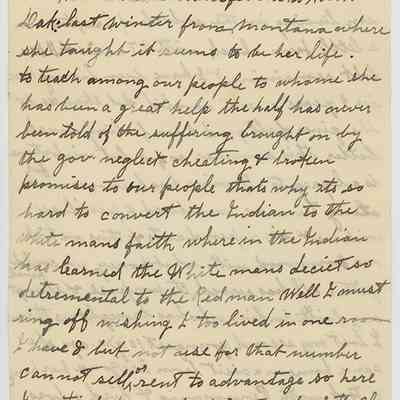 Dak. last winter from Montana where
she taught it seems to be her life.
to teach among our people to whome she
has been a great help the half has never
been told of the suffering brought on by
the gov neglect cheating & broken
promises to our people thats why its so
hard to convert the Indian to the
white mans faith where in the Indian
has learned the White mans deciet so
detremental to the Redman Well I must
ring off wishing I too lived in one room
I have 8 but not use for that number
cannot sell or rent to advantage so here